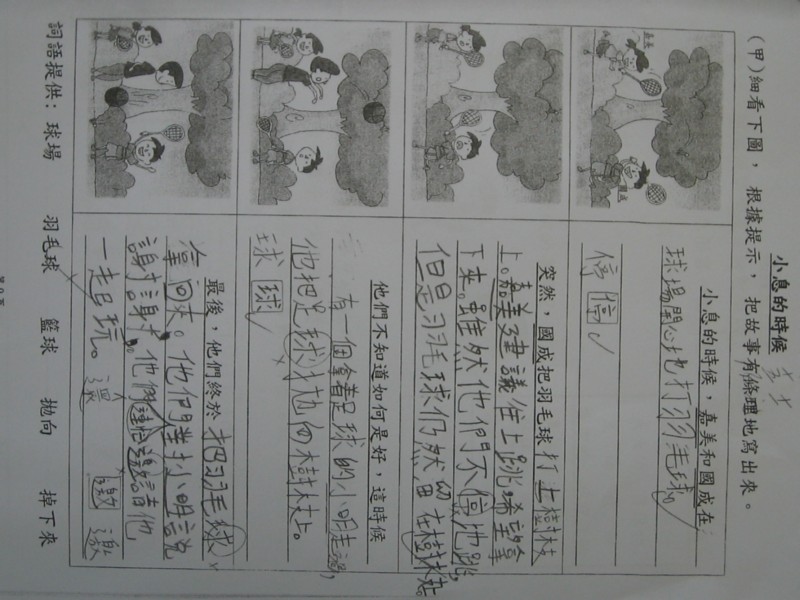 小息的時候
(甲)細看下圖，根據提示，把故事有條理地寫出來。
小息的時候，嘉美和國成在
球場開心地打羽毛球。
停停
突然，國成把羽毛球打上樹枝
上。嘉美建議往上跳希望拿
下來。雖然他們不停地跳，
但是羽毛球仍然留在樹枝上。
他們不知道如何是好，這時候
有一個拿着足球的小明走過，
他把足球拋向樹枝上。
球球
最後，他們終於把羽毛球
拿回來。他們對小明說
謝謝。他們邀請他
一起玩。
邀邀
詞語提供：球場 羽毛球 籃球 拋向 掉下來